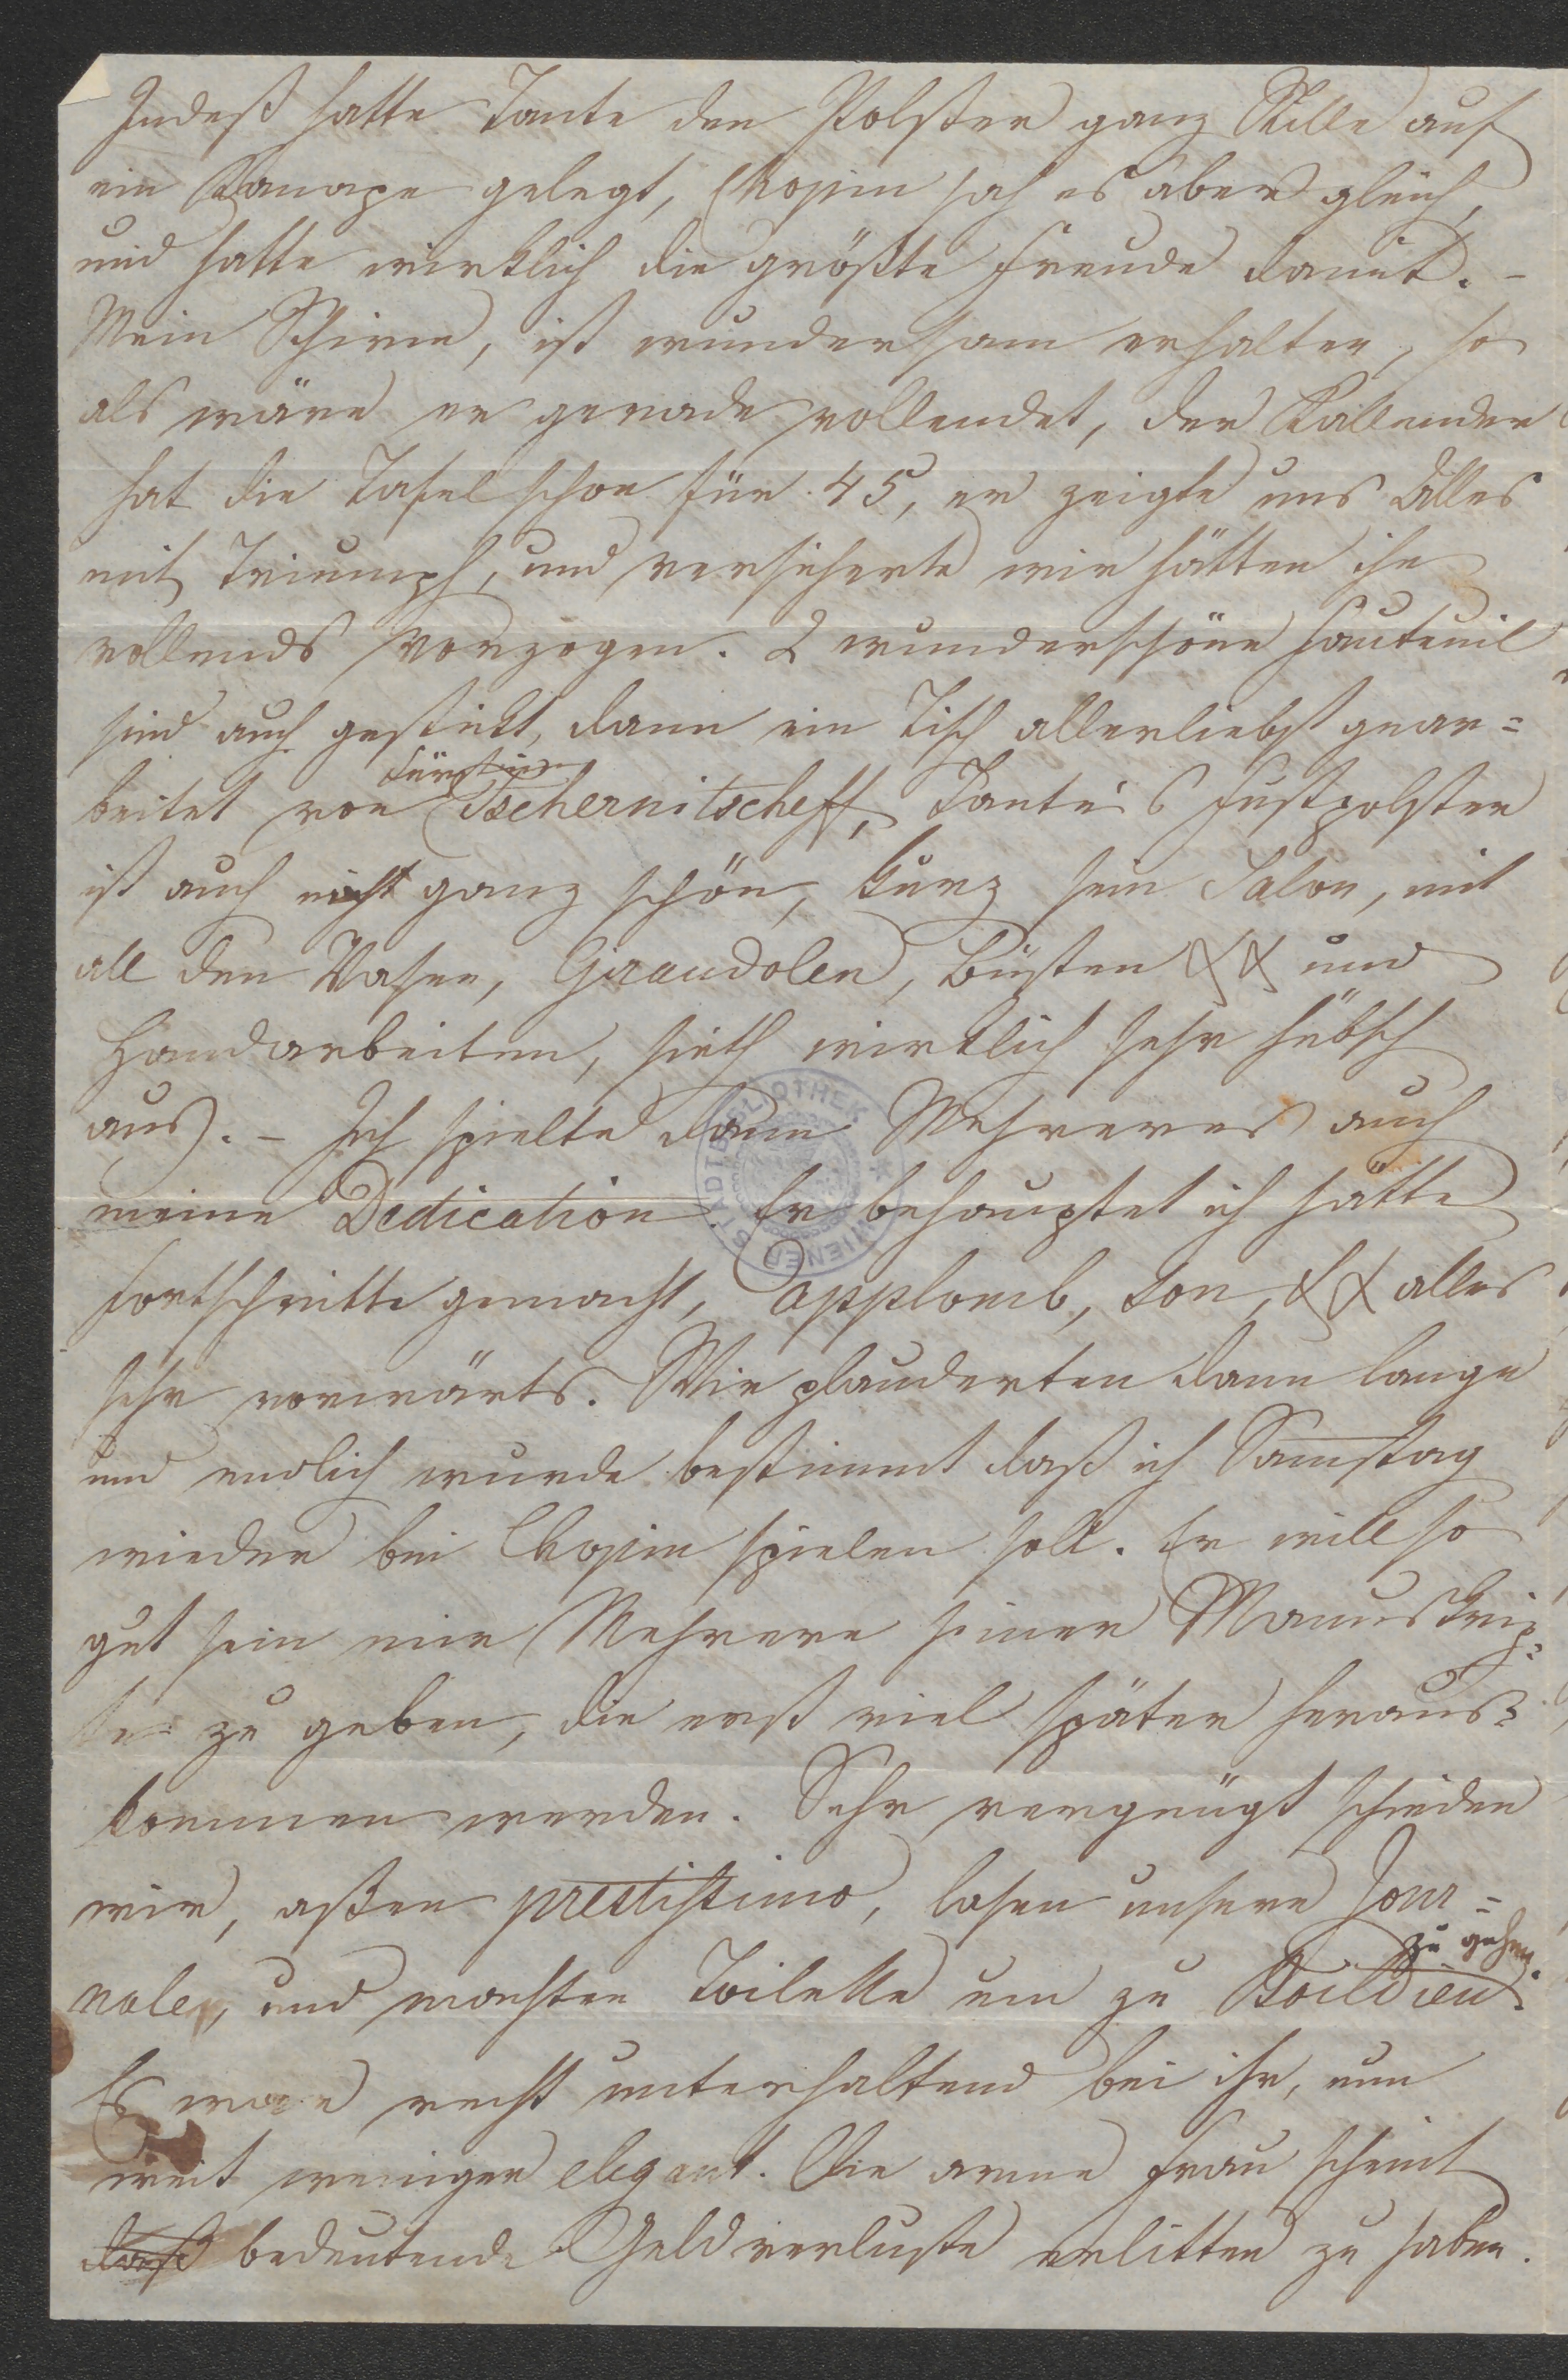 Indeß hatte Tante den Polster ganz Stille auf
ein Kanape gelegt, Chopin sah es aber gleich,
und hatte wirklich die größte Freude damit. –
Mein Schirm, ist wundersam erhalten, so
als wäre er gerade vollendet, der Kallender
hat die Tafel schon für 45, er zeigte uns Alles
mit Triumph, und versicherte wir hätten ihn
vollends verzogen. 2 wunderschöne Fauteuil
sind auch gestickt, dann ein Tisch allerliebst gear=
beitet von Fürstin Tschernitscheff, Tante's Fußpolster
ist auch recht ganz schön, kurz sein Salon, mit
all den Vasen, Girandolen, Büsten xx und
Handarbeiten, sieht wirklich sehr hübsch
aus. – Ich spielte dann Mehreres auch
meine Dedication. Er behauptet ich hätte
Fortschritte gemacht, applomb, Ton, xx alles
sehr vorwärts. Wir plauderten dann lange
und endlich wurde bestimmt daß ich Samstag
wieder bei Chopin spielen soll. Er will so
gut sein mir Mehrere seiner Manuskrip=
te zu geben, die erst viel später heraus=
kommen werden. Sehr vergnügt schieden
wir, aßen prestissimo, lasen unsere Jour=
nale, und machten Toilette um zu Boildieu zu gehen.
Es war recht unterhaltend bei ihr, nun
weit weniger elegant. Die arme Frau scheint
daß bedeutende Geldverluste erlitten zu haben.
WIENER STADTBIBLIOTHEK